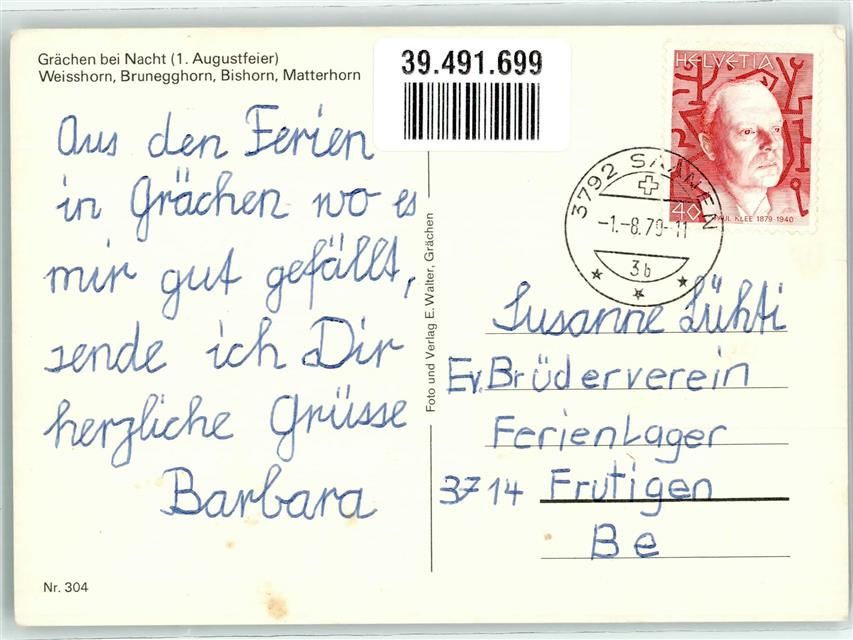 Grächen bei Nacht (1. Augustfeier)
Weisshorn, Brunegghorn, Bishorn, Matterhorn
39.491.699
HELVETIA
40
PAUL KLEE 1879-1940
3792 SAANEN
-1.-8.79-11
3b
Aus den Ferien
in Grächen wo es
mir gut gefällt,
sende ich Dir
herzliche Grüsse
Barbara
Foto und Verlag E. Walter, Grächen
Susanne Lühti
Ev. Brüderverein
Ferienlager
3714 Frutigen
Be
Nr. 304